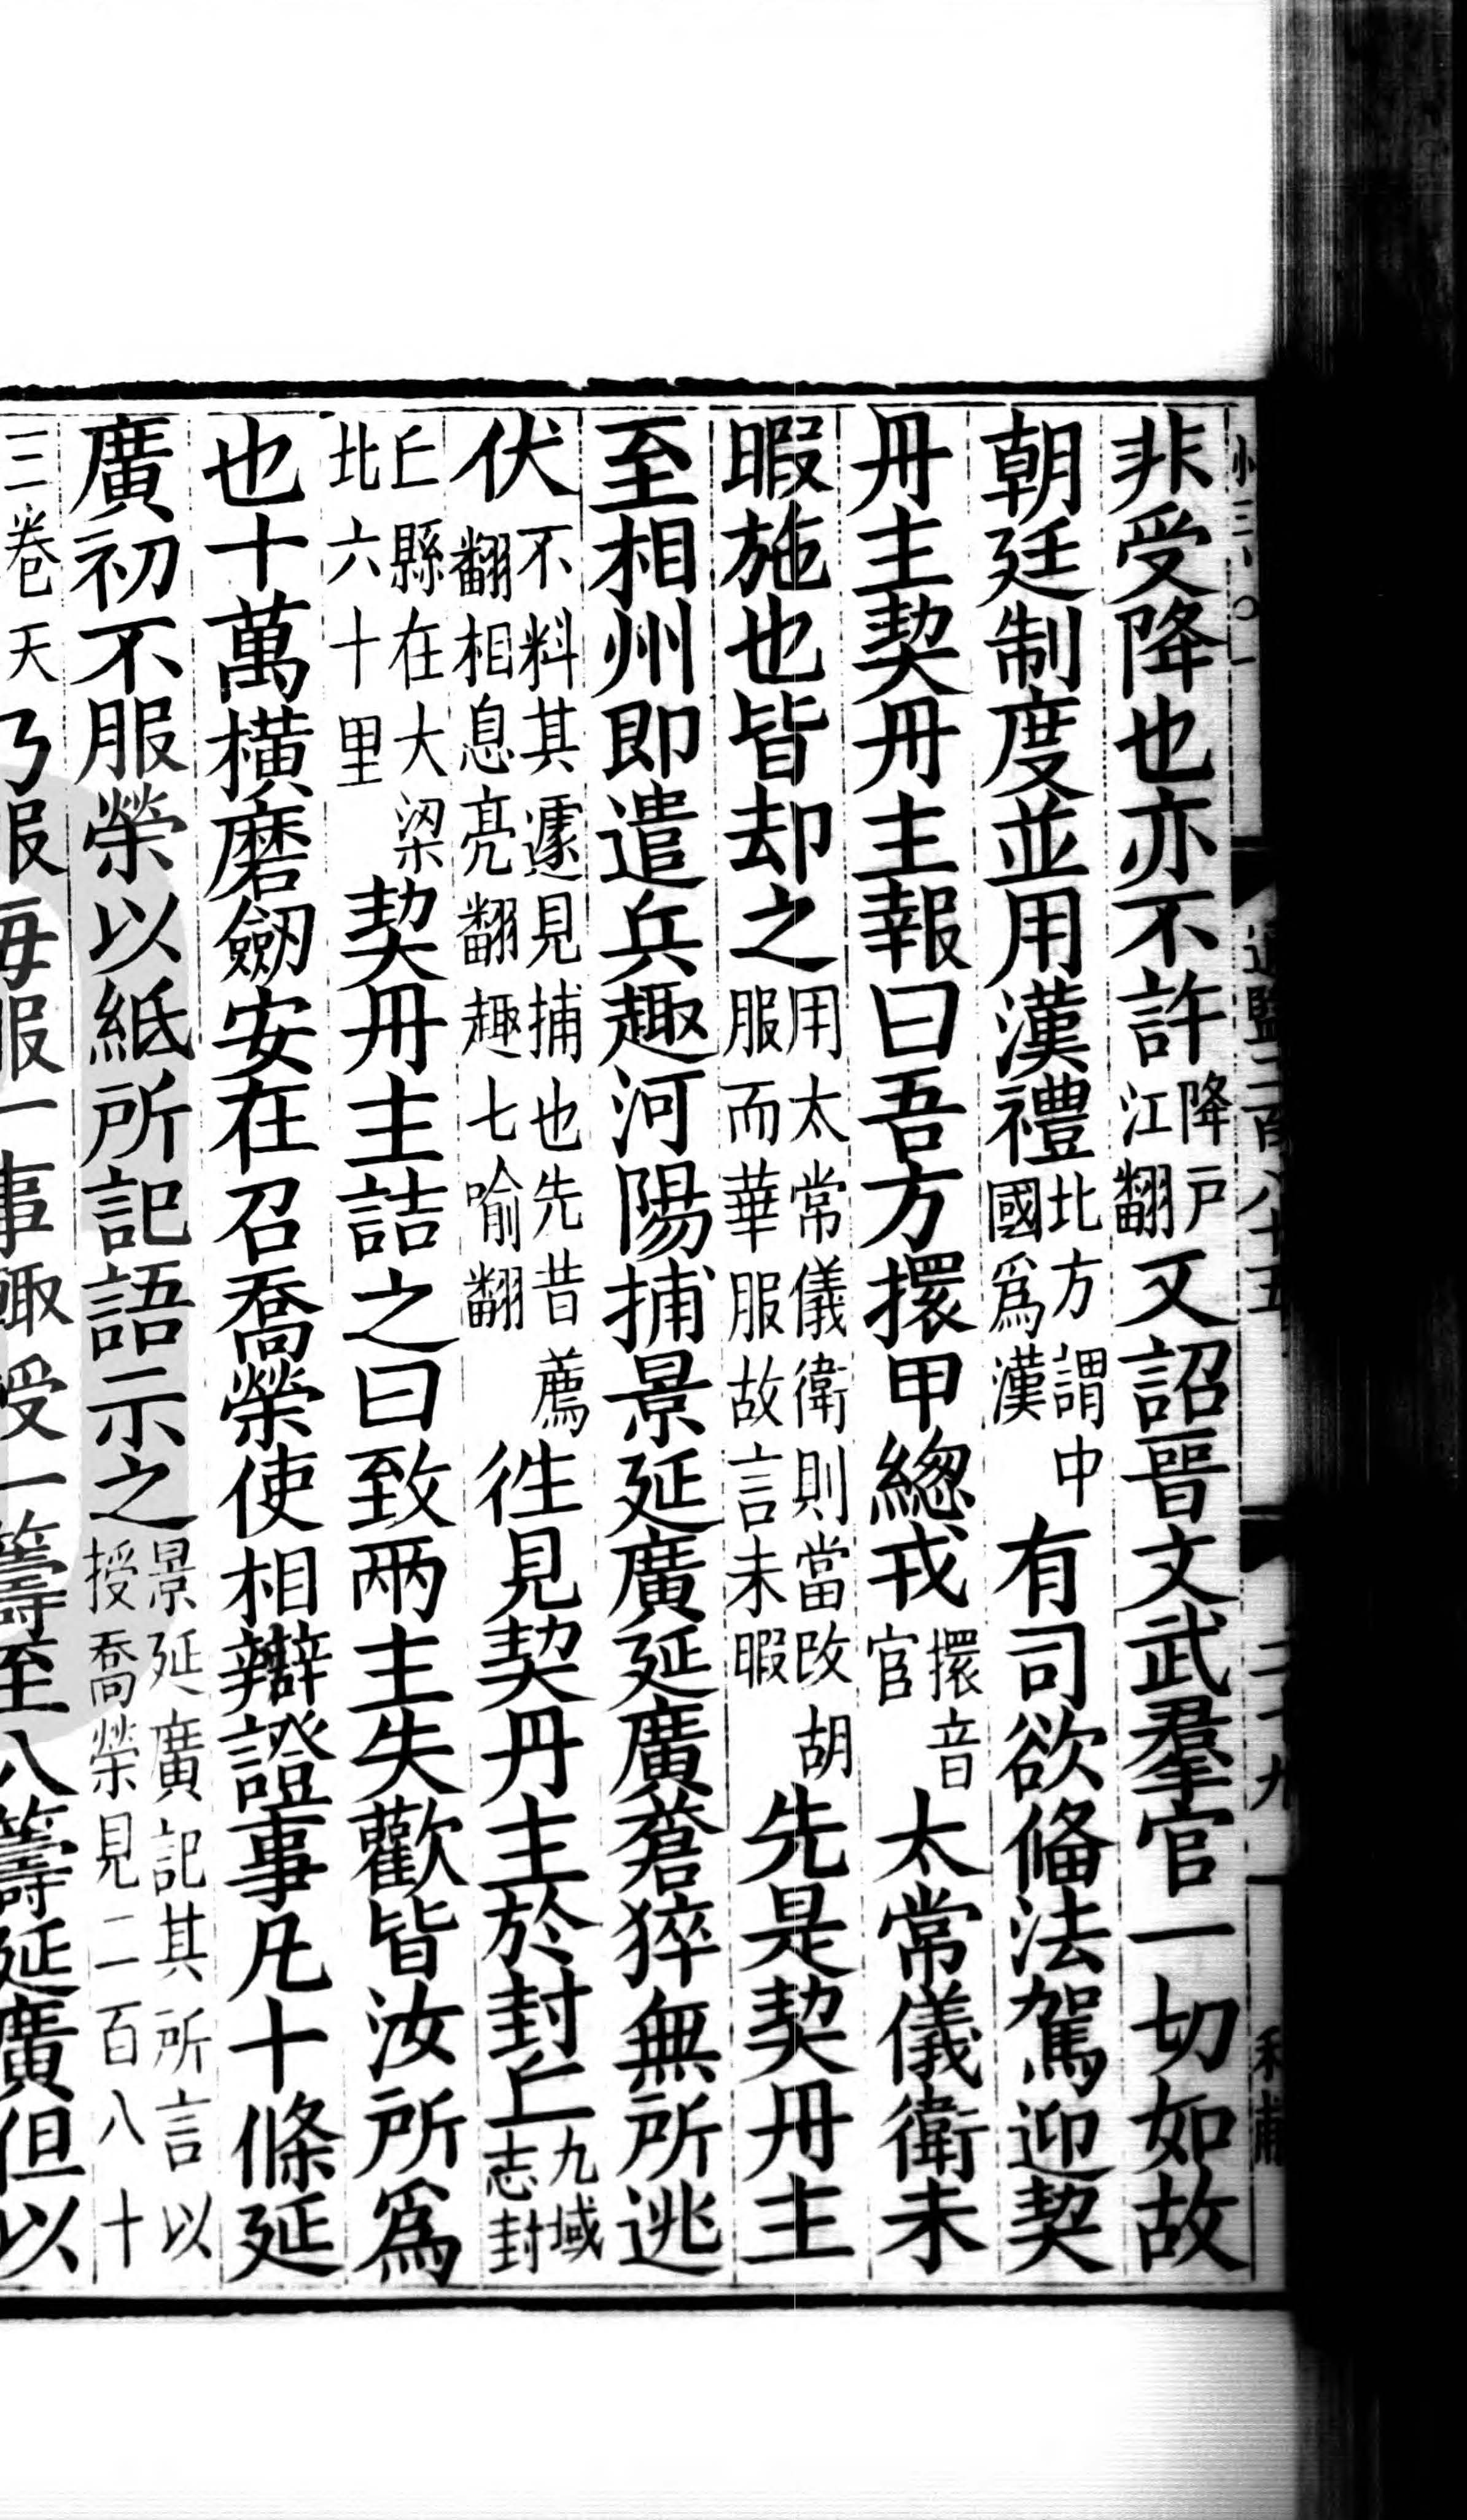 非受降也亦不許降戶江翻又詔晉文武羣官一切如故
朝廷制度並用漢禮北方謂中國爲漢有司欲俻法駕迎契
丹主契丹主報曰吾方擐甲緫戎擐音官太常儀衛未
暇施也皆却之用太常儀衛則當改胡服而華服故言未暇先是契丹主
至相州即遣兵趣河陽捕景延廣延廣蒼猝無所逃
伏不料其遽見捕也先昔薦翻相息亮翻趣七喻翻徃見契丹主於封丘九域志封
丘縣在大梁北六十里契丹主詰之曰致兩主失歡皆汝所爲
也十萬橫磨劒安在召喬榮使相辯證事凡十條延
廣初不服榮以紙所記語示之景延廣記其所言以授喬榮見二百八十
三卷天乃服每服一事輙授一籌至八籌延廣但以
通鑑二百八十五
二十九